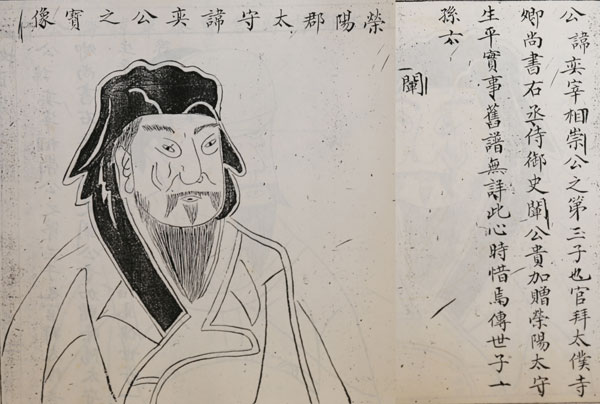 公諱奕宰相崇公之第三子也官拜太僕寺
卿尚書右丞侍御史闡公貴加贈榮陽太守
生平實事舊譜無詳此心時惜焉傳世子一
孫六
闡
榮陽郡太守諱奕公之寶像